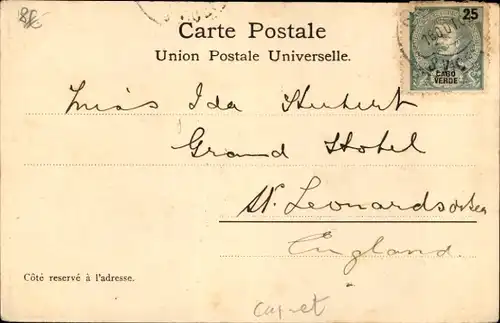 Carte Postale
25
Union Postale Universelle.
CABO
VERDE
Miss Ida Herbert
Grand Hotel
St. Leonards on Sea
England.
Côté reservé à l'adresse.